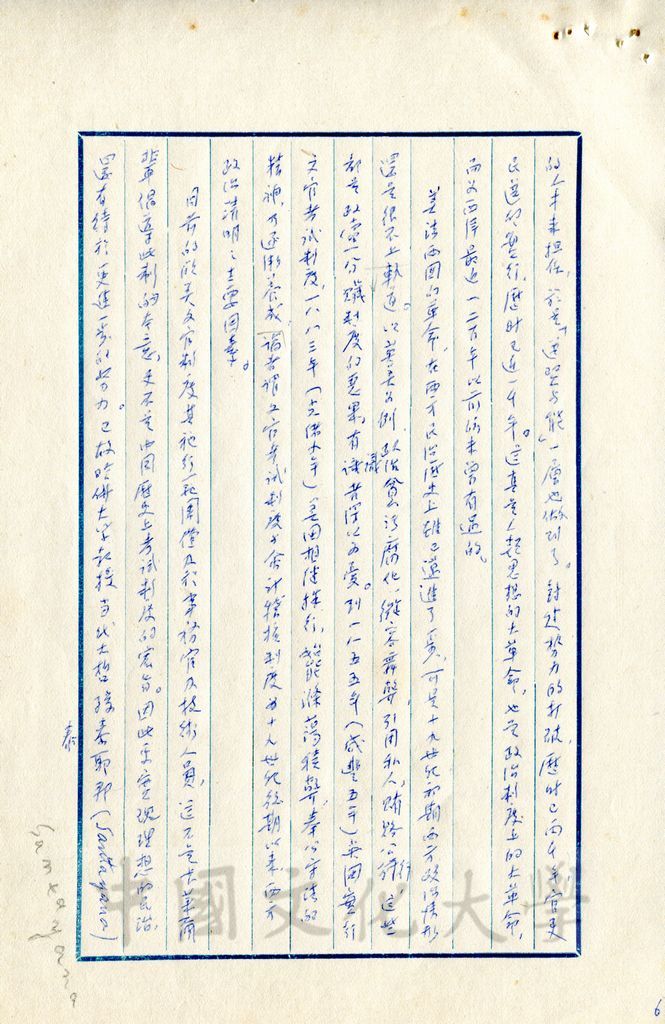 的人才來担任，於是「選賢與能」一層也做到了。封建勢力的打破，歷時已兩千年，官吏
民選的實行，歷時已近一千年。這真是人類思想的大革命，也是政治制度上的大革命，
而為西洋最近一二百年以前所未曾有過的。
美法兩國的革命，在西方民治歷史上雖已邁進了一步，可是十九世紀初期西方政治情形
還是很不上軌道。以英美為例，政治貪污腐化，縱容舞弊，引用私人，賄賂公行，這些
都是政黨分贓制度的惡果，有識者深以為憂。到一八五五年（咸豐五年）英國實行
文官考試制度，一八八三年（光緒九年）美國相繼採行，始能滌蕩積弊，奉公守法的
精神，乃逐漸養成，論者謂文官考試制度與會計稽核制度為十九世紀後期以來西方
政治清明之主要因素。
目前的歐美文官制度其施行範圍僅及於事務官及技術人員，這不是大革爾
輩倡導此制的本意，更不是中國歷史上考試制度的宗旨。因此要實現理想的民治，
還有待於更進一步的努力。已故哈佛大學教授當代大哲孫泰耶那（Santayana）
泰
Santayana
6
中國文化大學